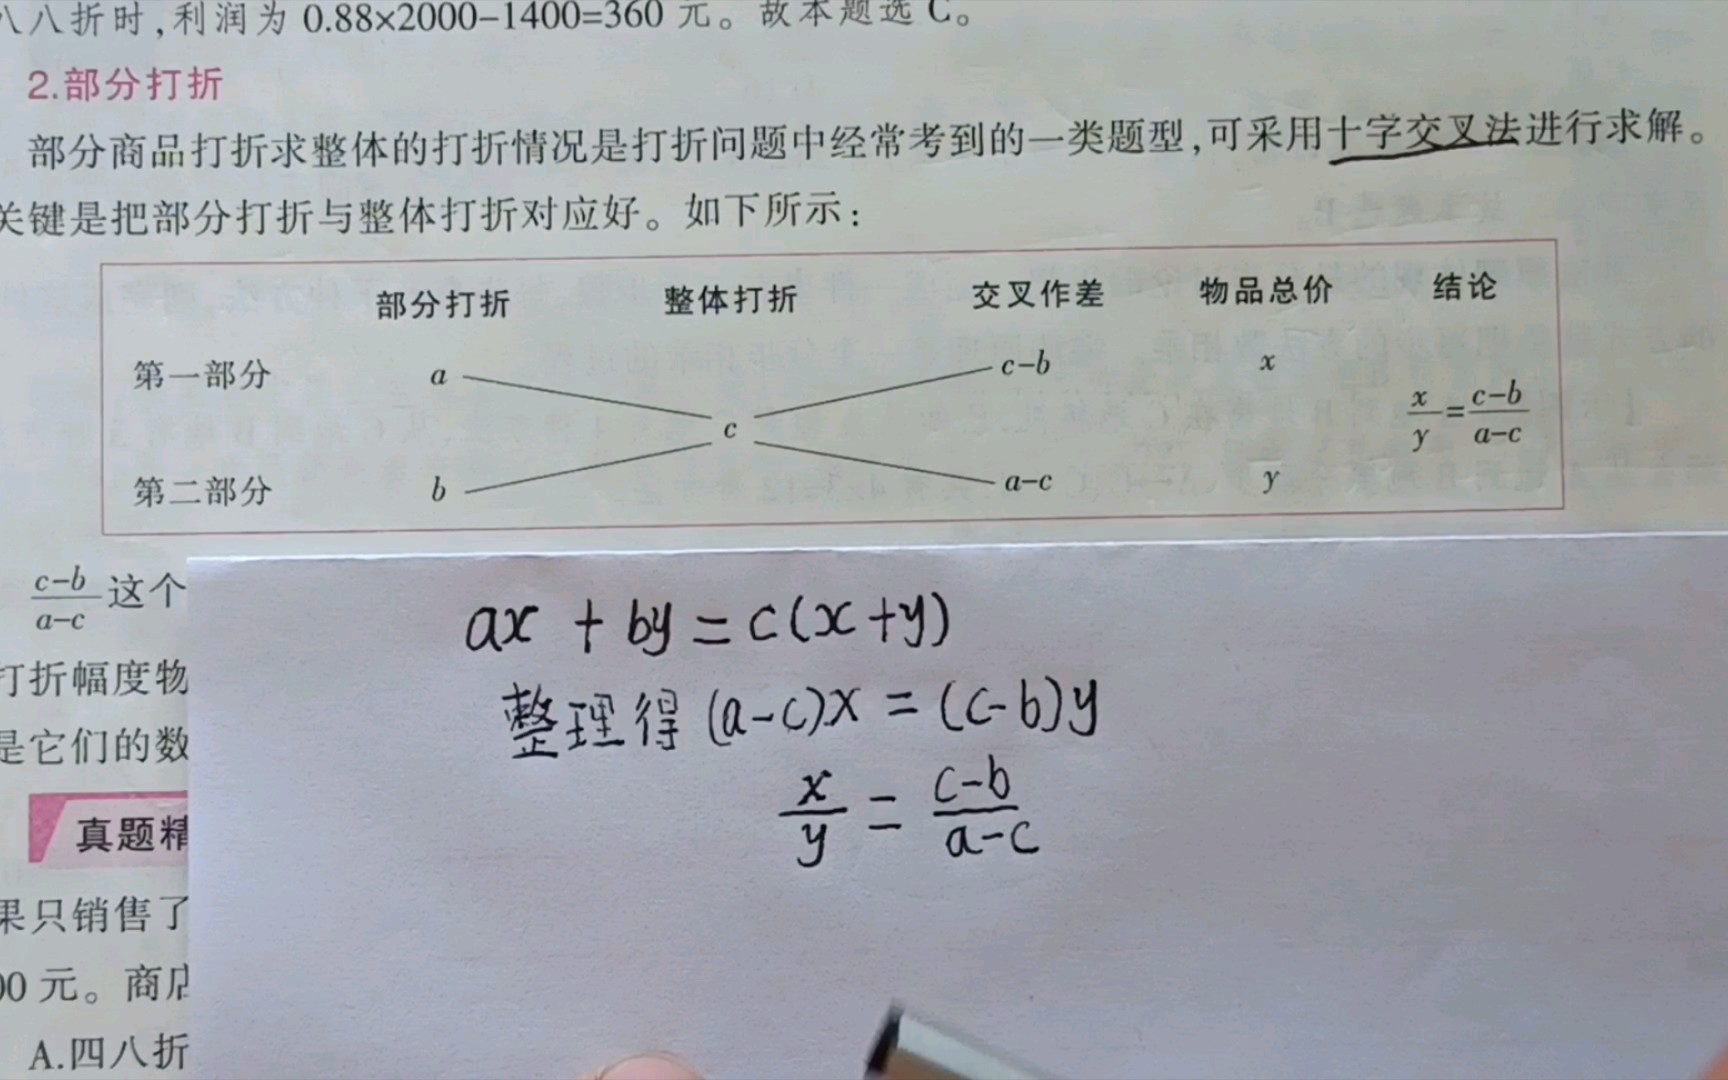 八八折时,利润为 0.88×2000-1400=360 元。故本题选 C。
2.部分打折
部分商品打折求整体的打折情况是打折问题中经常考到的一类题型,可采用十字交叉法进行求解。
关键是把部分打折与整体打折对应好。如下所示:
部分打折 整体打折 交叉作差 物品总价 结论
第一部分 a c-b x
c x/y=c-b/a-c
第二部分 b a-c y
c-b/a-c 这个
打折幅度物
是它们的数
真题精
果只销售了
00 元。商店
A.四八折
ax + by = c(x+y)
整理得 (a-c)x = (c-b)y
x/y = c-b/a-c